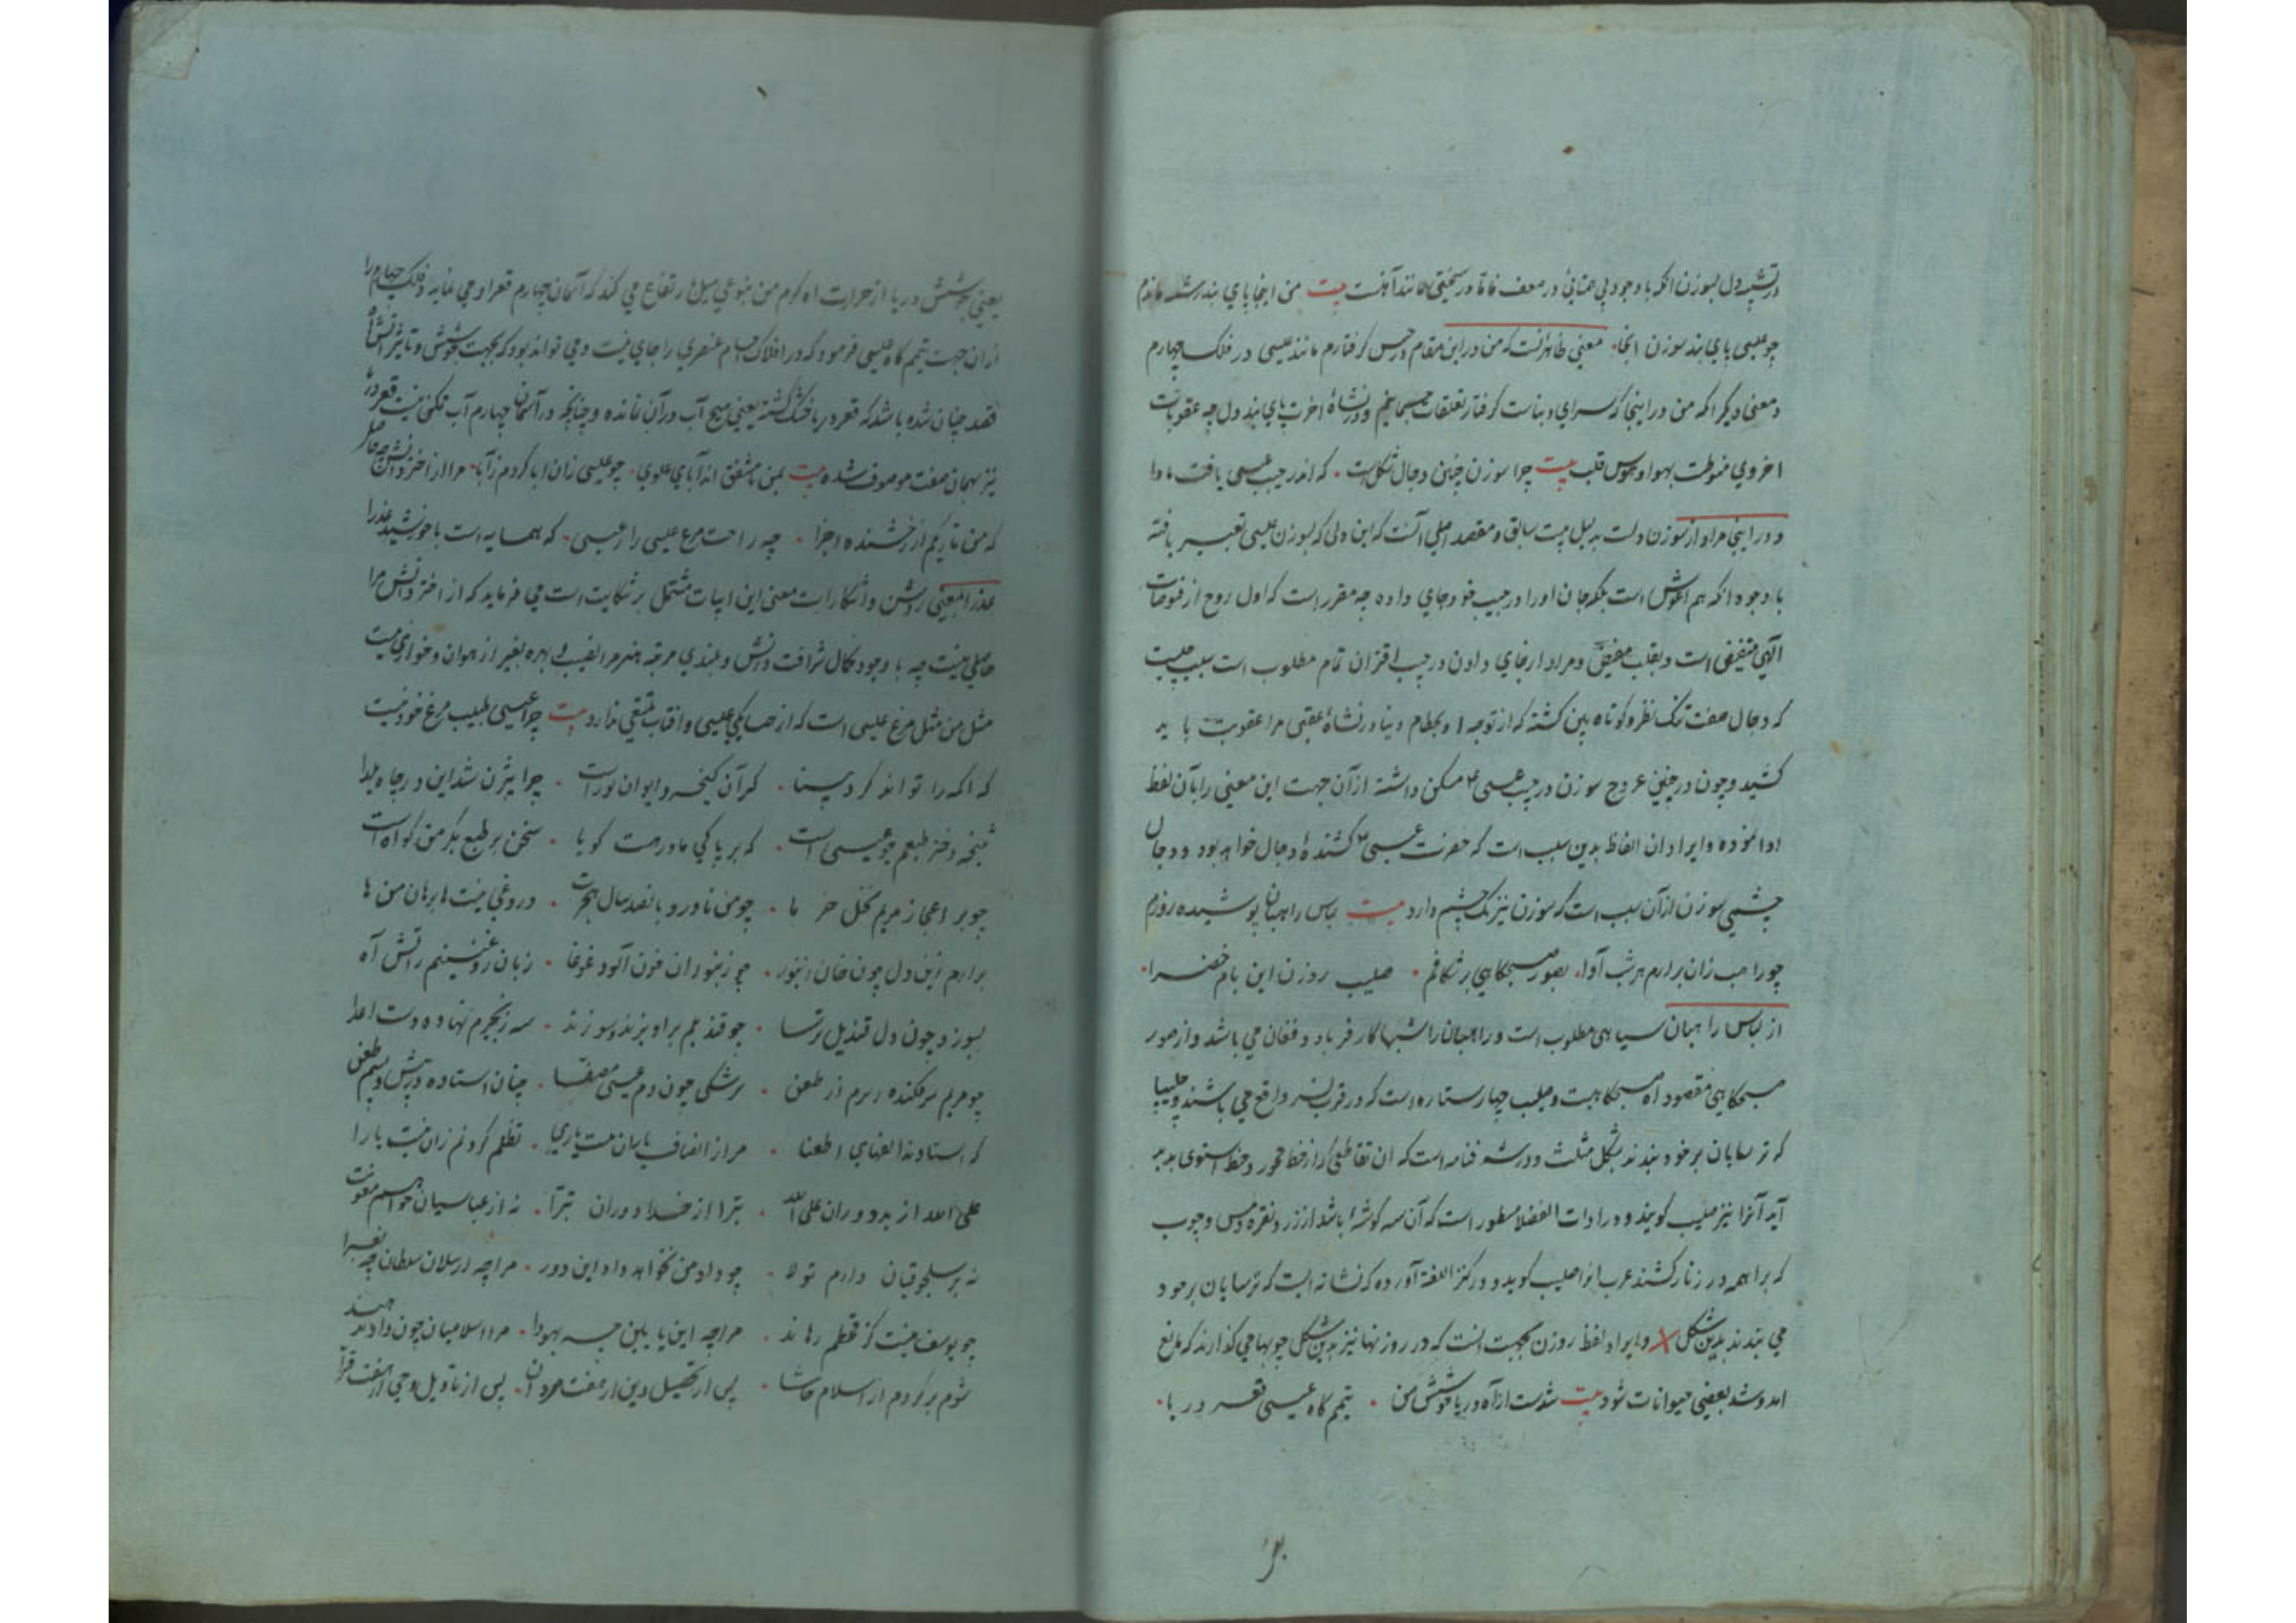 در تشبیه دل بسوزن انکه با وجود بی عنائی در معف فاقا در سختی مانند آهنست بیت من اینجا پای بند رشته ماندم
چو عیسی پای بند سوزن انجا۰ معنی ظاهر انست که من در این مقام در حبس گرفتارم مانند عیسی در فلک چهارم
و معنی دیگر انکه من در اینجا که سرای دنیاست گرفتار تعلقات جسمانیم و در نشاهٔ اخرت پای بند دل چه عقوبات
اخروی منوطست بهوا و هوس قلب بیت چرا سوزن چنین دجال شکلست ۰ که اندر جیب عیسی یافت ماوا
و در اینجا مراد از سوزن دلست بدلیل بیت سابق و مقصد اصلی آنست که این دلی که بسوزن عیسی تعبیر یافته
با وجود انکه هم اغوش است بلکه جان او را در جیب خود جای داده چه مقرر است که اول روح از فیوضات
الهی مستفیض است و بقلب مفیض و مراد از جای دادن در جیب اقتران تمام مطلوب است بسبب چیست
که دجال صفت تنک نظر و کوتاه بین کشته که از توجه او بحطام دنیا در نشاهٔ عقبی مرا عقوبت باید
کشید و چون در حین عروج سوزن در جیب عیسی ۴ مسکن داشته از آن جهت این معنی را بآن لفظ
ادا نموده و ایراد ان الفاظ بدین سبب است که حضرت عیسی ۴ کشندهٔ دجال خواهد بود و دجال
چشمی سوزن ازآن سبب است که سوزن نیز یک چشم دارد بیت لباس راهبان پوشیده روزم
چو راهب زان برارم هر شب آوا۰ بصور صبحگاهی بر شکافم ۰ صلیب روزن این بام خضرا۰
از لباس راهبان سیاهی مطلوب است و راهبان را شبها کار فریاد و فغان می باشد و از صور
صبحگاهی مقصود آه صبحگاهیست و صلیب چهار ستاره است که در قرب نسر واقع می باشند و چلیپا
که ترسایان بر خود بندند بشکل مثلث و در رشیدی است که ان تقاطعی که از خط محور و خط استوی پدید
آید آنرا نیز صلیب گویند و در ادات الفضلا مسطور است که آن سه گوشهٔ باشد از زر و نقره و مس و چوب
که براهمه در زنار کشند عرب انرا صلیب گوید و در کنز اللغة آورده که نشانه ایست که ترسایان بر خود
می بندند بدین شکل X و ایراد لفظ روزن بجهت انست که در روزنها نیز بدین شکل چوبها می گذارند که مانع
امد و شد بعضی حیوانات شود بیت شدست از آه دریا جوشش من ۰ تیمم گاه عیسی قعر دریا۰
یعنی
یعنی جوشش دریا از حرارت اه گرم من بنوعی میل بارتفاع می کند که آسمان چهارم قعر او می نماید و فلک چهارم را
از ان جهت تیمم گاه عیسی فرمود که در افلاک اجسام عنصری را جای نیست و می تواند بود که بجهت جوشش و تاثیر آتش آه
قصد چنان شده باشد که قعر دریا خشک گشته یعنی هیچ آب در آن نمانده و چنانچه در آسمان چهارم آب ممکن نیست قعر دریا
نیز بهمان صفت موصوف شده بیت بمن نامشفق اند آبای علوی ۰ چو عیسی زان ابا کردم ز آبا۰ مرا از اختر دانش چه حاصل
که من تاریکم از رخشنده اجزا ۰ چه راحت مرغ عیسی را ز عیسی ۰ که همسایه است با خورشید عذرا
عذرا بمعنی روشن و آشکار است معنی این ابیات مشتمل بر شکایت است می فرماید که از اختر دانش مرا
حاصلی نیست چه با وجود کمال شرافت دانش و بلندی مرتبه هنر مرا نصیب و بهره بغیر از هوان و خواری نیست
مثل من مثل مرغ عیسی است که از همسایگی عیسی و افتاب تمتعی ندارد بیت چرا عیسی طبیب مرغ خود نیست
که اکمه را تواند کرد بینا ۰ گر آن کیخسرو ایوان نورست ۰ چرا بیژن شد این در چاه یلدا
نتیجه دختر طبعم چو عیسی است ۰ که بر پاکی مادر هست گویا ۰ سخن بر طبع بکر من گواه است
چو بر اعجاز مریم نخل خرما ۰ چو من ناورد پانصد سال هجرت ۰ دروغی نیست ها برهان من ها
برارم زین دل چون خان زنبور ۰ چو زنبوران خون آلود غوغا ۰ زبان روغنینم ز آتش آه
بسوزد چون دل قندیل ترسا ۰ چو قندیلم براویزند و سوزند ۰ سه زنجیرم نهاده دست اعدا
چو مریم سرفکنده ریزم از طعن ۰ سرشکی چون دم عیسی مصفّا ۰ چنان استاده ام پیش و پس طعن
که استادست الفهای اطعنا ۰ مرا ز انصاف یاران نیست یاری ۰ تظلم کردنم زان نیست یارا
علی الله از بد دوران علی الله ۰ تبرا از خدا دوران تبرّا ۰ نه از عباسیان خواهم معونت
نه بر سلجوقیان دارم تولا ۰ چو داد من نخواهد داد این دور ۰ مرا چه ارسلان سلطان چه بغرا
چو یوسف نیست کز قحطم رهاند ۰ مرا چه ابن یامین چه یهودا ۰ مرا اسلامیان چون داد ندهند
شوم برگردم از اسلام حاشا ۰ پس از تحصیل دین از هفت مردان ۰ پس از تاویل وحی از هفت قرّا